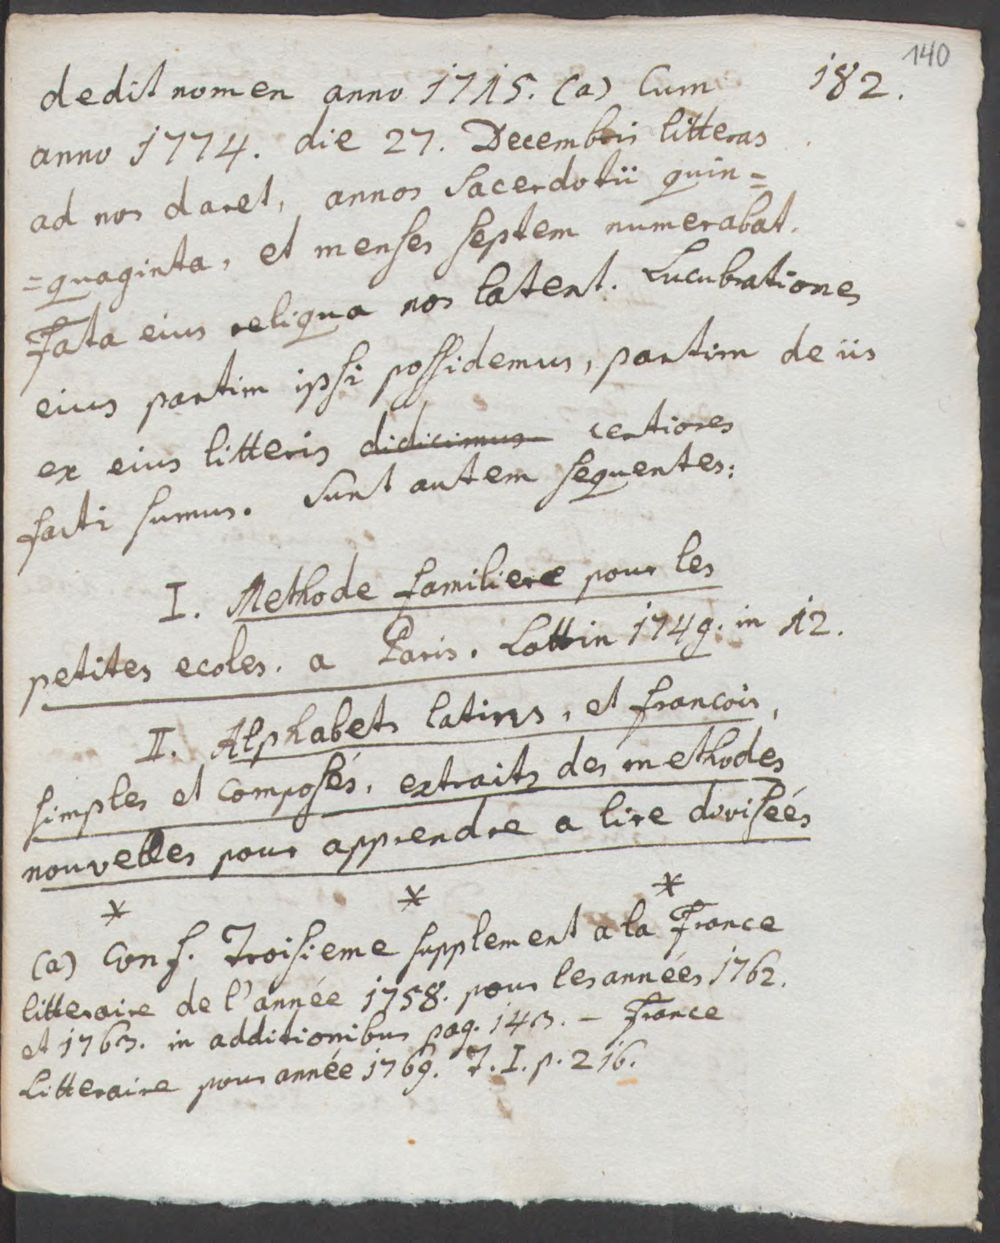 140
dedit nomen anno 1715. (a) Cum 182.
anno 1774. die 27. Decembris litteras
ad nos daret, annos Sacerdotii quin=
=quaginta, et menses septem numerabat.
Fata eius reliqua nos latent. Lucubrationes
eius partim ipsi possidemus, partim de iis
ex eius litteris didicimus certiores
facti sumus. Sunt autem sequentes:
I. Methode familiere pour les
petites ecoles. a Paris. Lottin 1749. in 12.
II. Alphabets latins, et francois,
simples et composés, extraits des methodes
nouvelles pour apprendre a lire divisées
* * *
(a) Conf. Troisieme supplement a la France
litteraire de l'année 1758. pour les années 1762.
et 1763. in additionibus pag. 143. - France
Litteraire pour année 1769. T. I. p. 216.